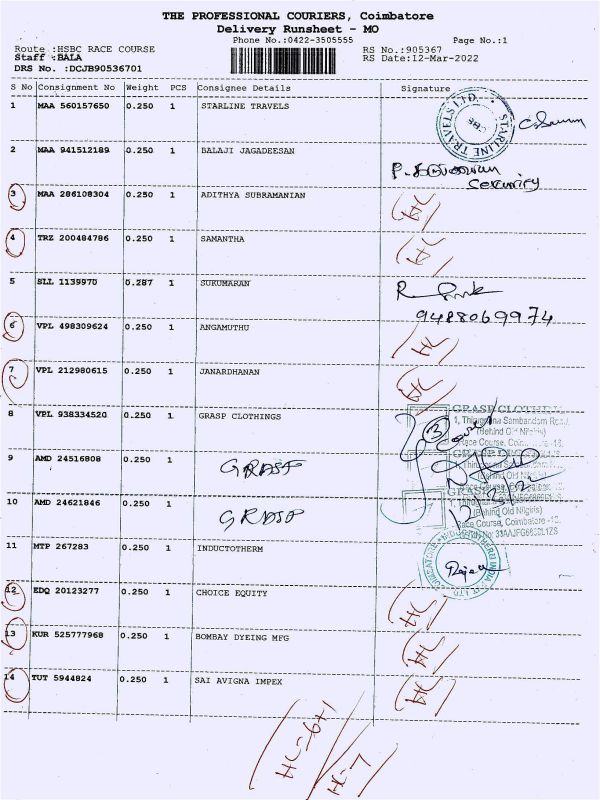 THE PROFESSIONAL COURIERS, Coimbatore
Delivery Runsheet - MO
Phone No.:0422-3505555 Page No.:1
Route :HSBC RACE COURSE RS No.:905367
Staff :BALA RS Date:12-Mar-2022
DRS No. :DCJB90536701
S No Consignment No Weight PCS Consignee Details Signature
1 MAA 560157650 0.250 1 STARLINE TRAVELS
STARLINE TRAVELS LTD. CBE
2 MAA 941512189 0.250 1 BALAJI JAGADEESAN
Security
3 MAA 286108304 0.250 1 ADITHYA SUBRAMANIAN HC
4 TRZ 200484786 0.250 1 SAMANTHA HC
5 SLL 1139970 0.287 1 SUKUMARAN
9488069974
6 VPL 498309624 0.250 1 ANGAMUTHU HC
7 VPL 212980615 0.250 1 JANARDHANAN HC
8 VPL 938334520 0.250 1 GRASP CLOTHINGS
GRASP CLOTHI
1, Thirugnana Sambandam Road,
(Behind Old Nilgiris)
Race Course, -18.
3
9 AMD 24516808 0.250 1 GRASP
10 AMD 24621846 0.250 1 GRASP
(Behind Old Nilgiris)
Race Course, Coimbatore -18.
11 MTP 267283 0.250 1 INDUCTOTHERM
12 EDQ 20123277 0.250 1 CHOICE EQUITY HC
13 KUR 525777968 0.250 1 BOMBAY DYEING MFG HC
14 TUT 5944824 0.250 1 SAI AVIGNA IMPEX HC
HC=6+1
HC-7